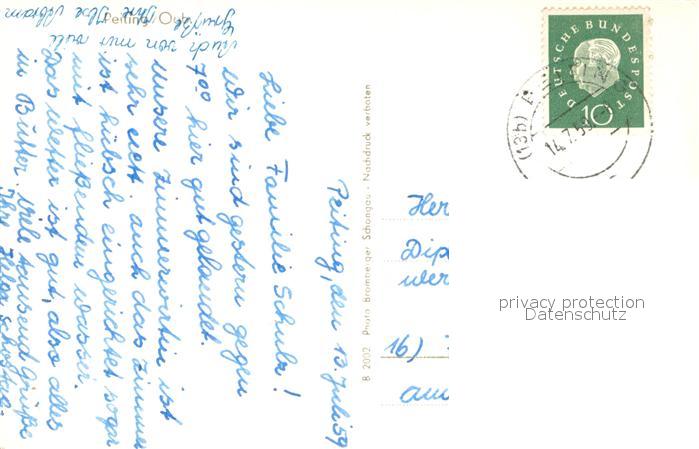 Peiting/Obb.
Peiting, den 13. Juli 59
Liebe Familie Schulz!
Wir sind gestern gegen
7ºº hier gut gelandet.
unsere Zimmerwirtin ist
sehr nett. auch das Zimmer
ist hübsch eingerichtet sogar
mit fließendem wasser.
Das wetter ist gut, also alles
in Butter. Viele tausend Grüße
Ihre Helga
Auch von mir viele
Grüße Ihre Ilse
B 2002 Photo Brombreiger Schongau - Nachdruck verboten
DEUTSCHE BUNDESPOST
10
(13b)
14.7.59
Her
Dip
wer
16)
am
privacy protection
Datenschutz